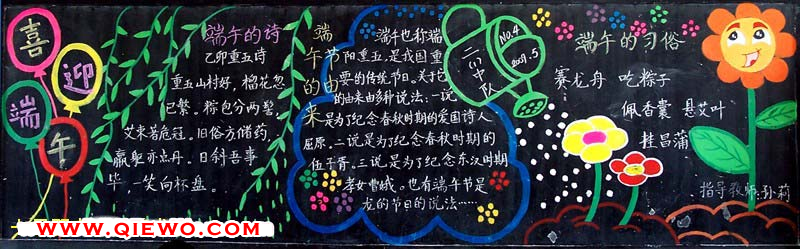 喜
迎
端
午
端午的诗
乙卯重五诗
重五山村好，榴花忽
已繁。粽包分两髻，
艾束著危冠。旧俗方储药，
羸躯亦点丹。日斜吾事
毕，一笑向杯盘。
端午的由来
端午也称端
节阳重五，是我国重
要的传统节日。关于它
的由来由多种说法：一说
是为了纪念春秋时期的爱国诗人
屈原。二说是为了纪念春秋时期的
伍子胥。三说是为了纪念东汉时期
孝女曹娥。也有端午节是
龙的节日的说法……
中队
No.4
5
端午的习俗
赛龙舟 吃粽子
佩香囊 悬艾叶
挂昌蒲
指导教师:孙莉
www.QIEWO.COM